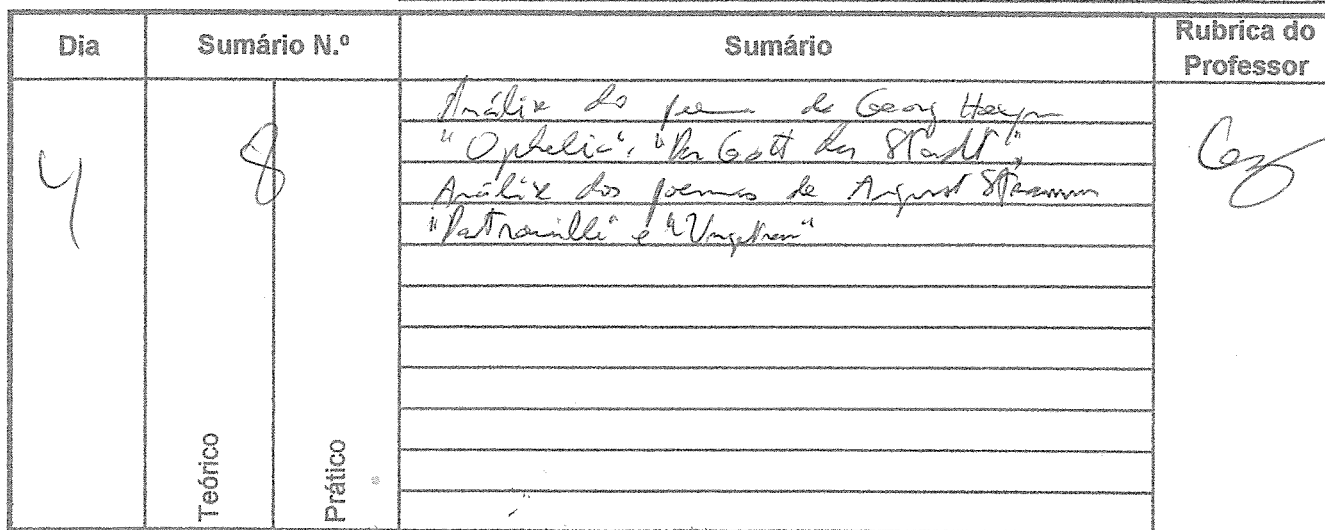 Dia Sumário N.º Sumário Rubrica do Professor
4 8
Análise do poema de Georg Heym
"Ophelia", "Der Gott der Stadt",
Análise dos poemas de August Stramm
"Patrouille" e
Teórico
Prático